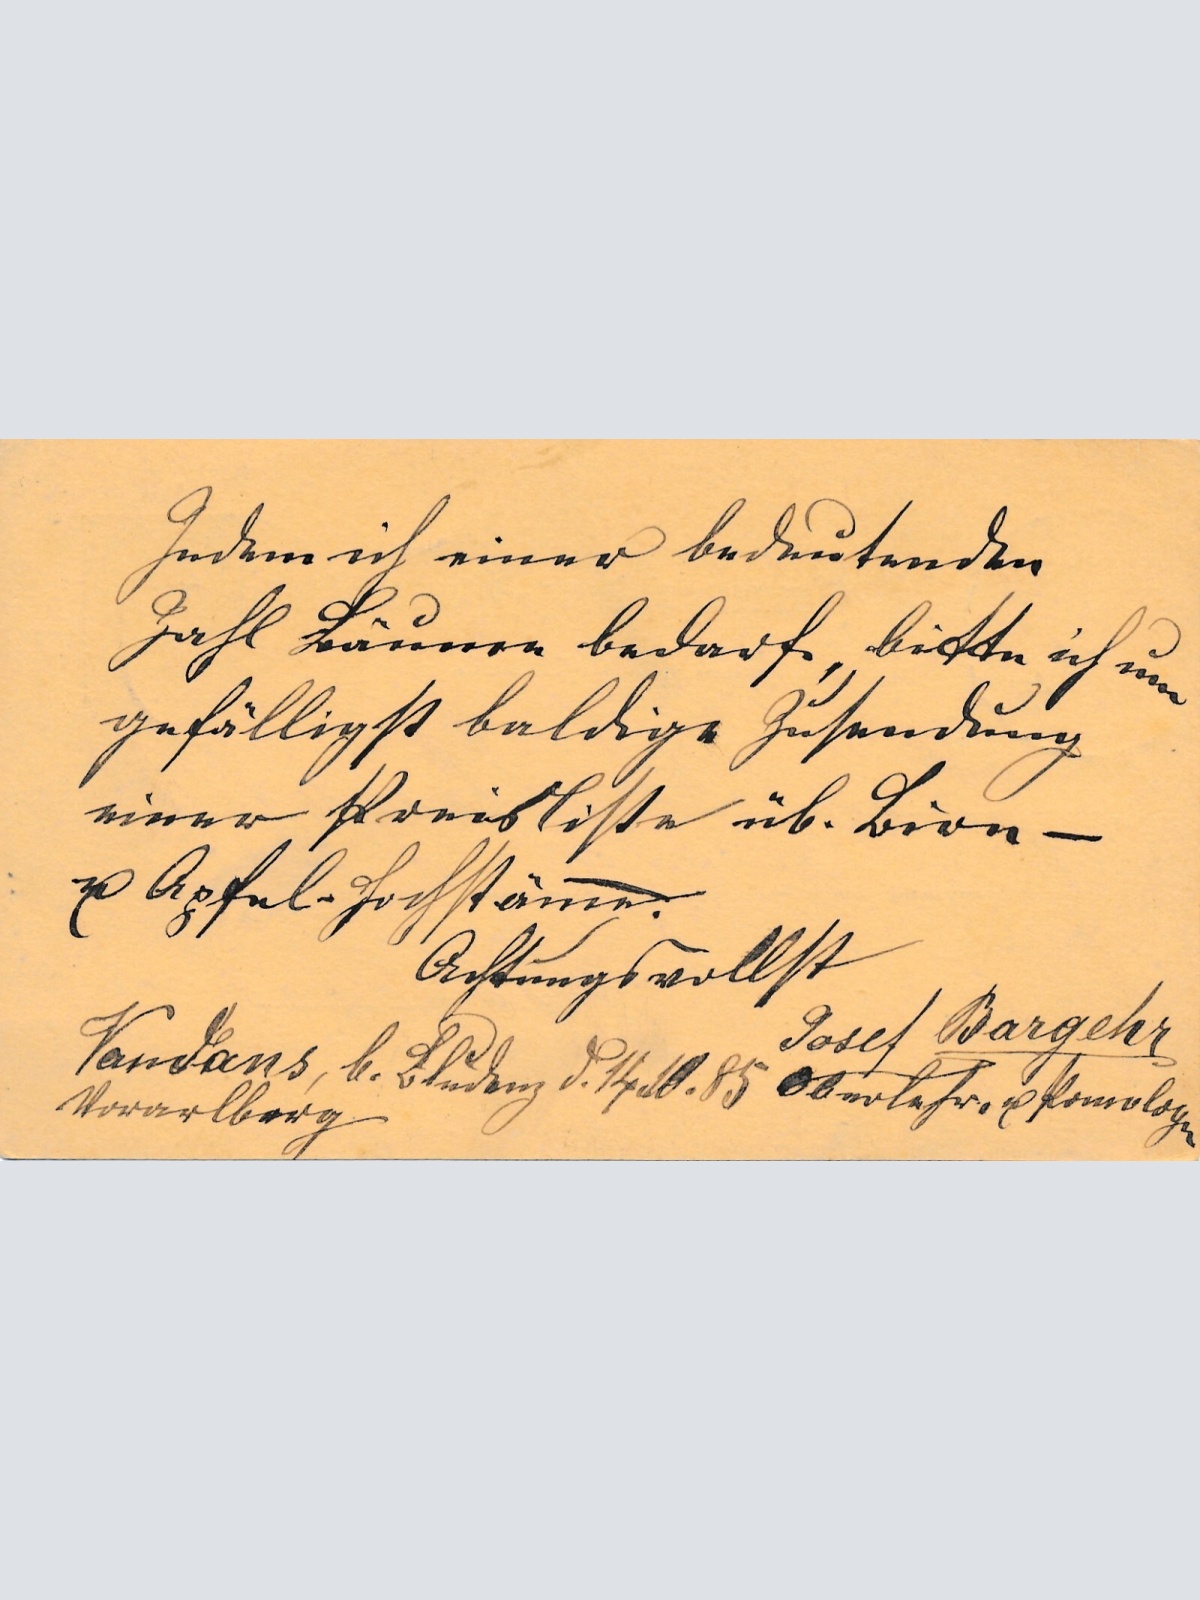 Indem ich einer bedeutenden
Zahl Bäume bedarf, bitte ich um
gefälligst baldige Zusendung
einer Preisliste üb. Birn-
u Apfel-Hochstäm̄e.
Achtungsvollst
Josef Bargehr
Vandans, b. Bludenz d. 14.10.85 Oberlehr. u Pomologe
Vorarlberg